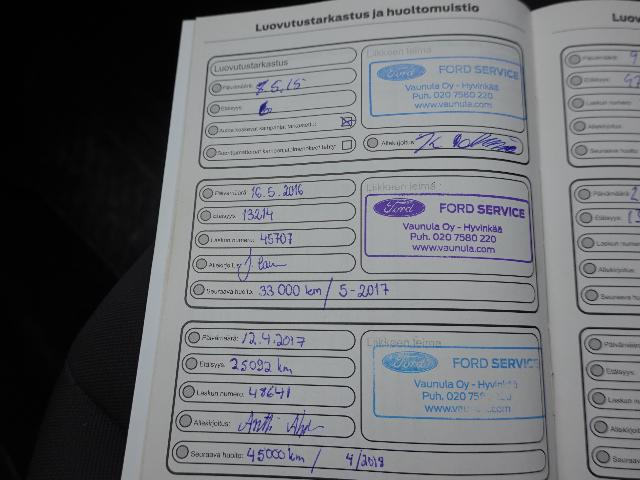 Luovutustarkastus ja huoltomuistio
Luovutustarkastus
Päivämäärä: 5.15
Etäisyys: 6
Liikkeen leima
Ford FORD SERVICE
Vaunula Oy - Hyvinkää
Puh. 020 7580 220
www.vaunula.com
Allekirjoitus:
Päivämäärä: 16.5.2016
Etäisyys: 13214
Laskun numero: 45707
Allekirjoitus:
Seuraava huolto: 33 000 km / 5-2017
Liikkeen leima
Ford FORD SERVICE
Vaunula Oy - Hyvinkää
Puh. 020 7580 220
www.vaunula.com
Päivämäärä: 12.4.2017
Etäisyys: 25092 km
Laskun numero: 48641
Allekirjoitus: Antti
Seuraava huolto: 45000 km / 4/2018
Liikkeen leima
Ford FORD SERVICE
Vaunula Oy - Hyvinkää
Puh. 020
Luov
Päivämäärä: 9
Etäisyys: 47
Laskun numero:
Allekirjoitus:
Seuraava huolto:
Päivämäärä: 2
Etäisyys:
Laskun numero:
Allekirjoitus:
Seuraava huolto:
Päivämäärä:
Etäisyys:
Laskun numero:
Allekirjoitus:
Seuraava